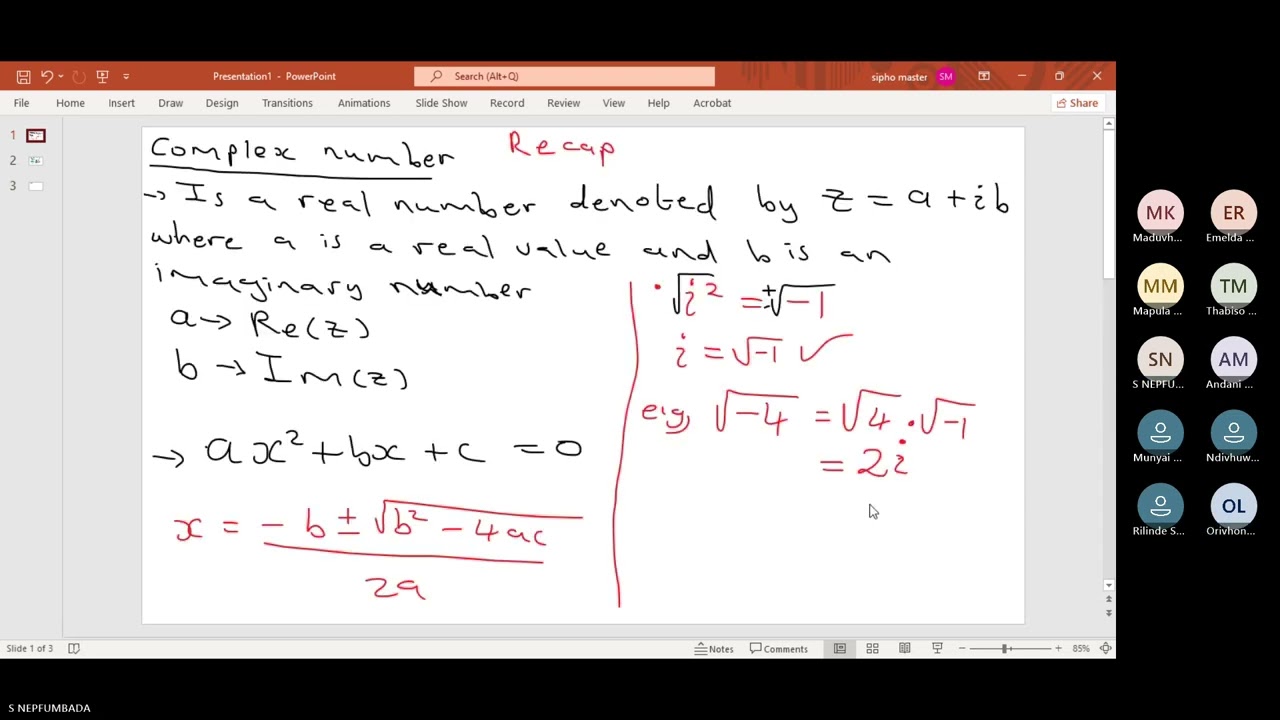 Presentation1 - PowerPoint
Search (Alt+Q)
sipho master
SM
File Home Insert Draw Design Transitions Animations Slide Show Record Review View Help Acrobat
Share
1
2
3
Complex number Recap
→ Is a real number denoted by z = a + ib
where a is a real value and b is an
imaginary number
a → Re(z)
b → Im(z)
→ ax² + bx + c = 0
x = - b ± √b² - 4ac
2a
• √i² = ±√-1
i = √-1 ✓
e.g, √-4 = √4 . √-1
= 2i
MK
Maduvh...
ER
Emelda ...
MM
Mapula ...
TM
Thabiso ...
SN
S NEPFU...
AM
Andani ...
Munyai ...
Ndivhuw...
Rilinde S...
OL
Orivhon...
Slide 1 of 3
Notes
Comments
85%
S NEPFUMBADA